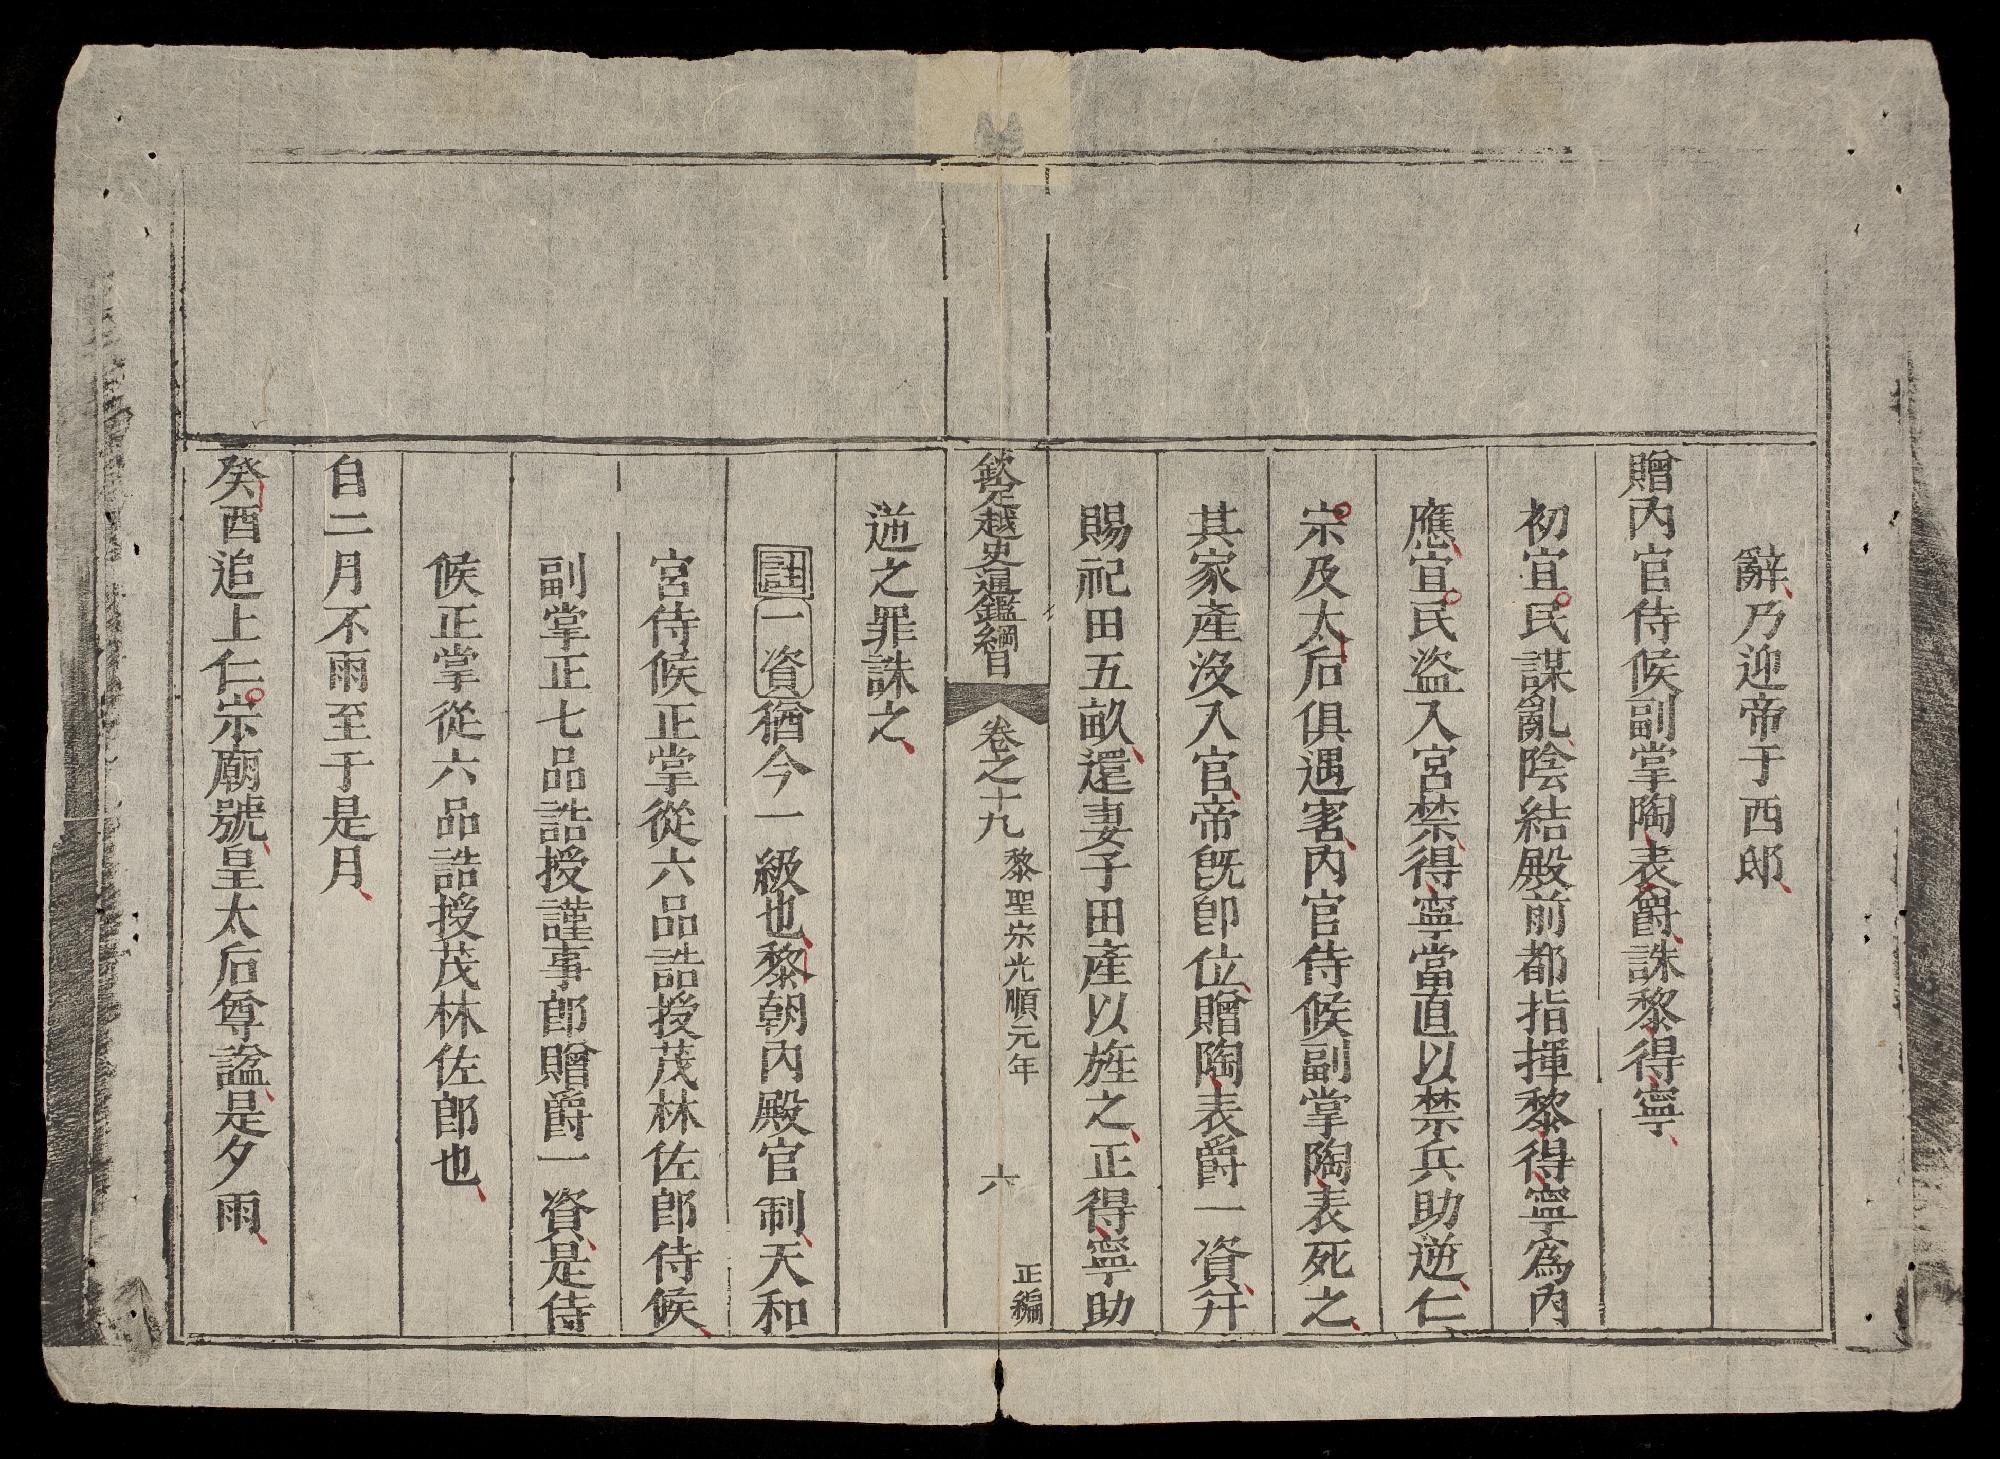 辭乃迎帝于西邸
贈內官侍候副掌陶表爵誅黎得寧
初宜民謀亂陰結殿前都指揮黎得寧爲內
應宜民盜入宮禁得寧當直以禁兵助逆仁
宗及太后俱遇害內官侍候副掌陶表死之
其家產沒入官帝旣卽位贈陶表爵一資幷
賜祀田五畝還妻子田產以旌之正得寧助
欽定越史通鑑綱目
卷之十九
黎聖宗光順元年
六
正編
逆之罪誅之
註一資猶今一級也黎朝內殿官制天和
宮侍候正掌從六品誥授茂林佐郎侍候
副掌正七品誥授謹事郎贈爵一資是侍
候正掌從六品誥授茂林佐郎也
自二月不雨至于是月
癸酉追上仁宗廟號皇太后尊諡是夕雨